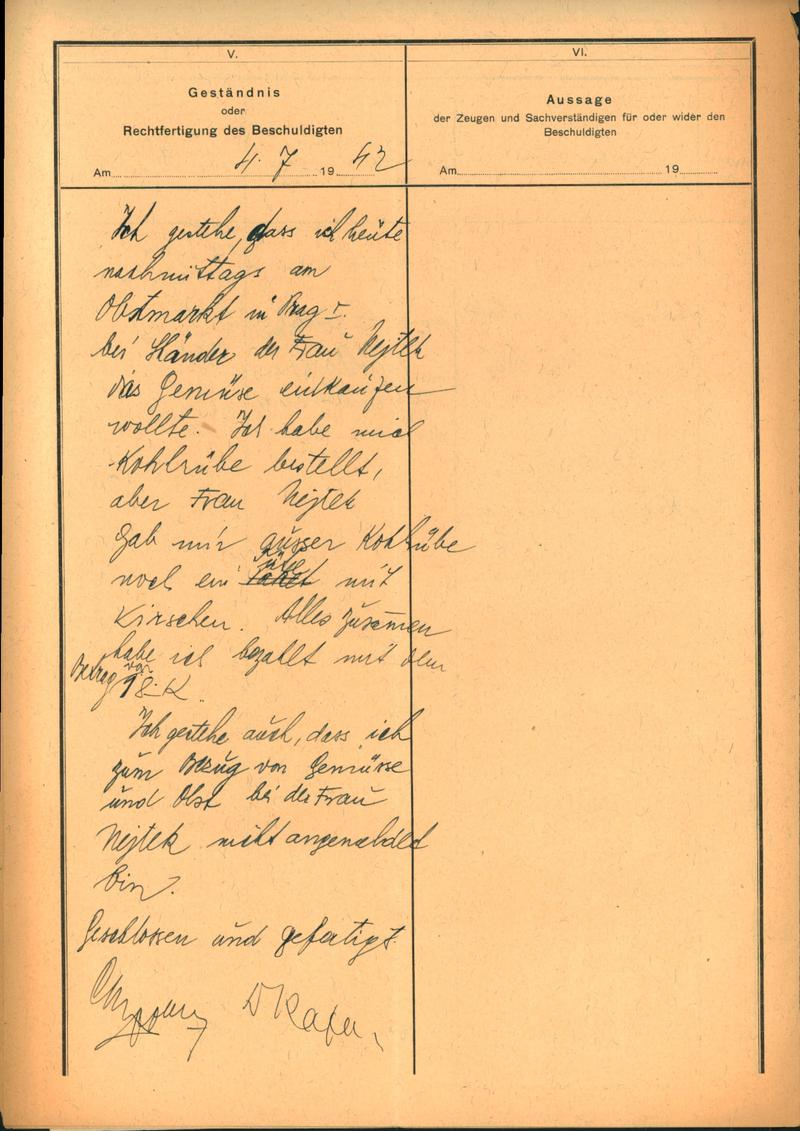 V.
Geständnis
oder
Rechtfertigung des Beschuldigten
Am 4. 7 1942
Ich gestehe, dass ich heute
nachmittags am
Obstmarkt in Prag I.
bei Händer der Frau Nejtek
das Gemüse einkaufen
wollte. Ich habe mich
Kohlrübe bestellt,
aber Frau Nejtek
gab mir ausser Kohlrübe
noch ein mit
Kirschen. Alles zusammen
habe ich bezahlt mit dem
Betrag von 18.K.
Ich gestehe auch, dass ich
zum Bezug von Gemüsse
und Obst bei der Frau
Nejtek nicht angemeldet
bin.
Geschlossen und gefertigt.
VI.
Aussage
der Zeugen und Sachverständigen für oder wider den
Beschuldigten
Am 19